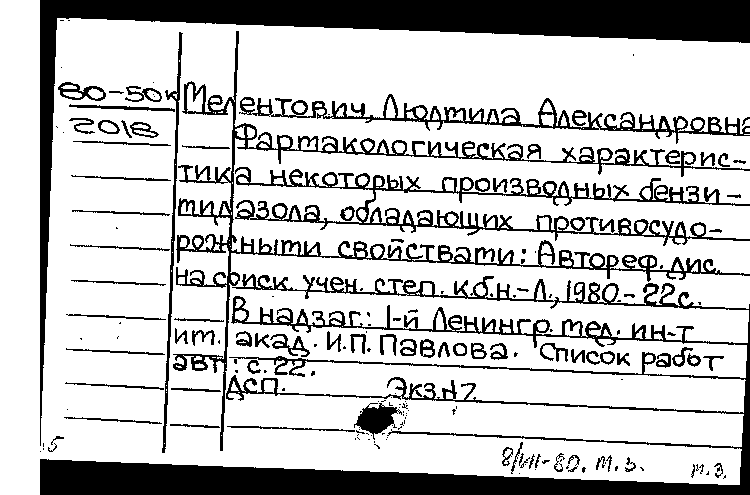 80-50к Мелентович, Людмила Александровна
2018 Фармакологическая характерис-
тика некоторых производных бензи-
мидазола, обладающих противосудо-
рожными свойствами: Автореф. дис.
на соиск. учен. степ. к.б.н.-Л., 1980.-22с.
В надзаг.: 1-й Ленингр. мед. ин-т
им. акад. И.П. Павлова. Список работ
авт.: с. 22.
ДСП. Экз.№7.
15 8/VII-80. т.з. т.з.